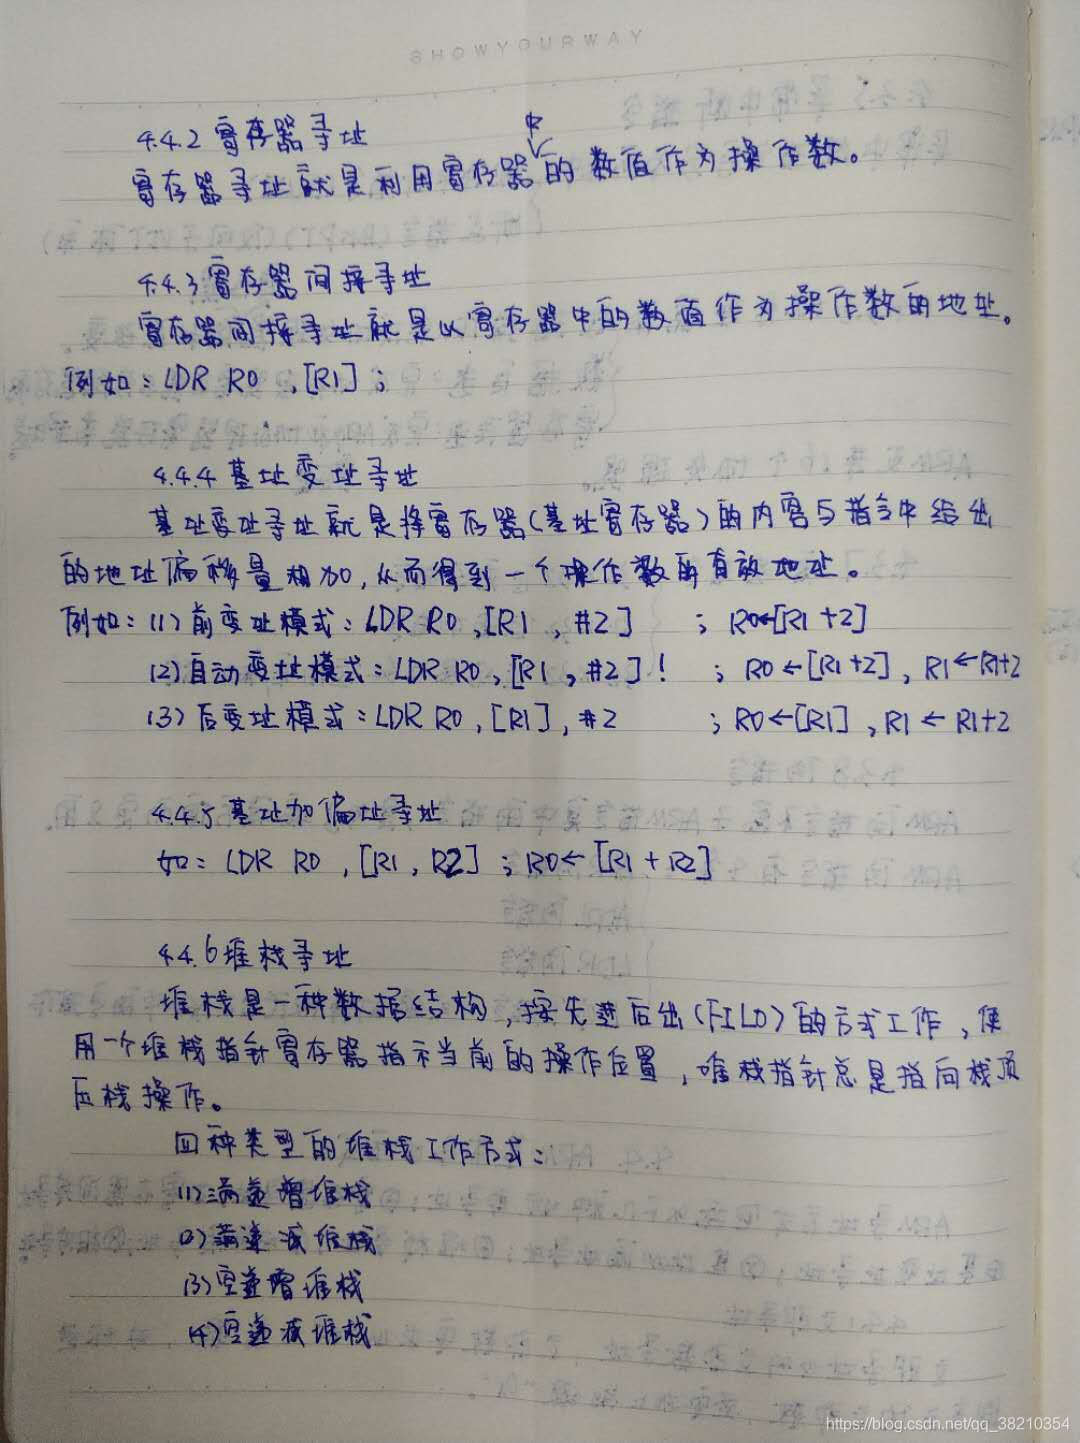 SHOWYOURWAY
4.4.2 寄存器寻址
寄存器寻址就是利用寄存器中的数值作为操作数。
4.4.3 寄存器间接寻址
寄存器间接寻址就是以寄存器中的数值作为操作数的地址。
例如：LDR R0 ,[R1] ;
4.4.4 基址变址寻址
基址变址寻址就是将寄存器(基址寄存器)的内容与指令中给出
的地址偏移量相加,从而得到一个操作数的有效地址。
例如：(1) 前变址模式：LDR R0 ,[R1 , #2] ; R0←[R1 +2]
(2) 自动变址模式：LDR R0 ,[R1 , #2] ! ; R0 ←[R1+2] , R1 ←R1+2
(3) 后变址模式：LDR R0 ,[R1] , #2 ; R0←[R1] , R1 ← R1+2
4.4.5 基址加偏址寻址
如：LDR R0 ,[R1 , R2] ; R0← [R1 + R2]
4.4.6 堆栈寻址
堆栈是一种数据结构,按先进后出(FILO)的方式工作,使
用一个堆栈指针寄存器指示当前的操作位置,堆栈指针总是指向栈顶
压栈操作。
四种类型的堆栈工作方式：
(1) 满递增堆栈
(2) 满递减堆栈
(3) 空递增堆栈
(4) 空递减堆栈
https://blog.csdn.net/qq_38210354